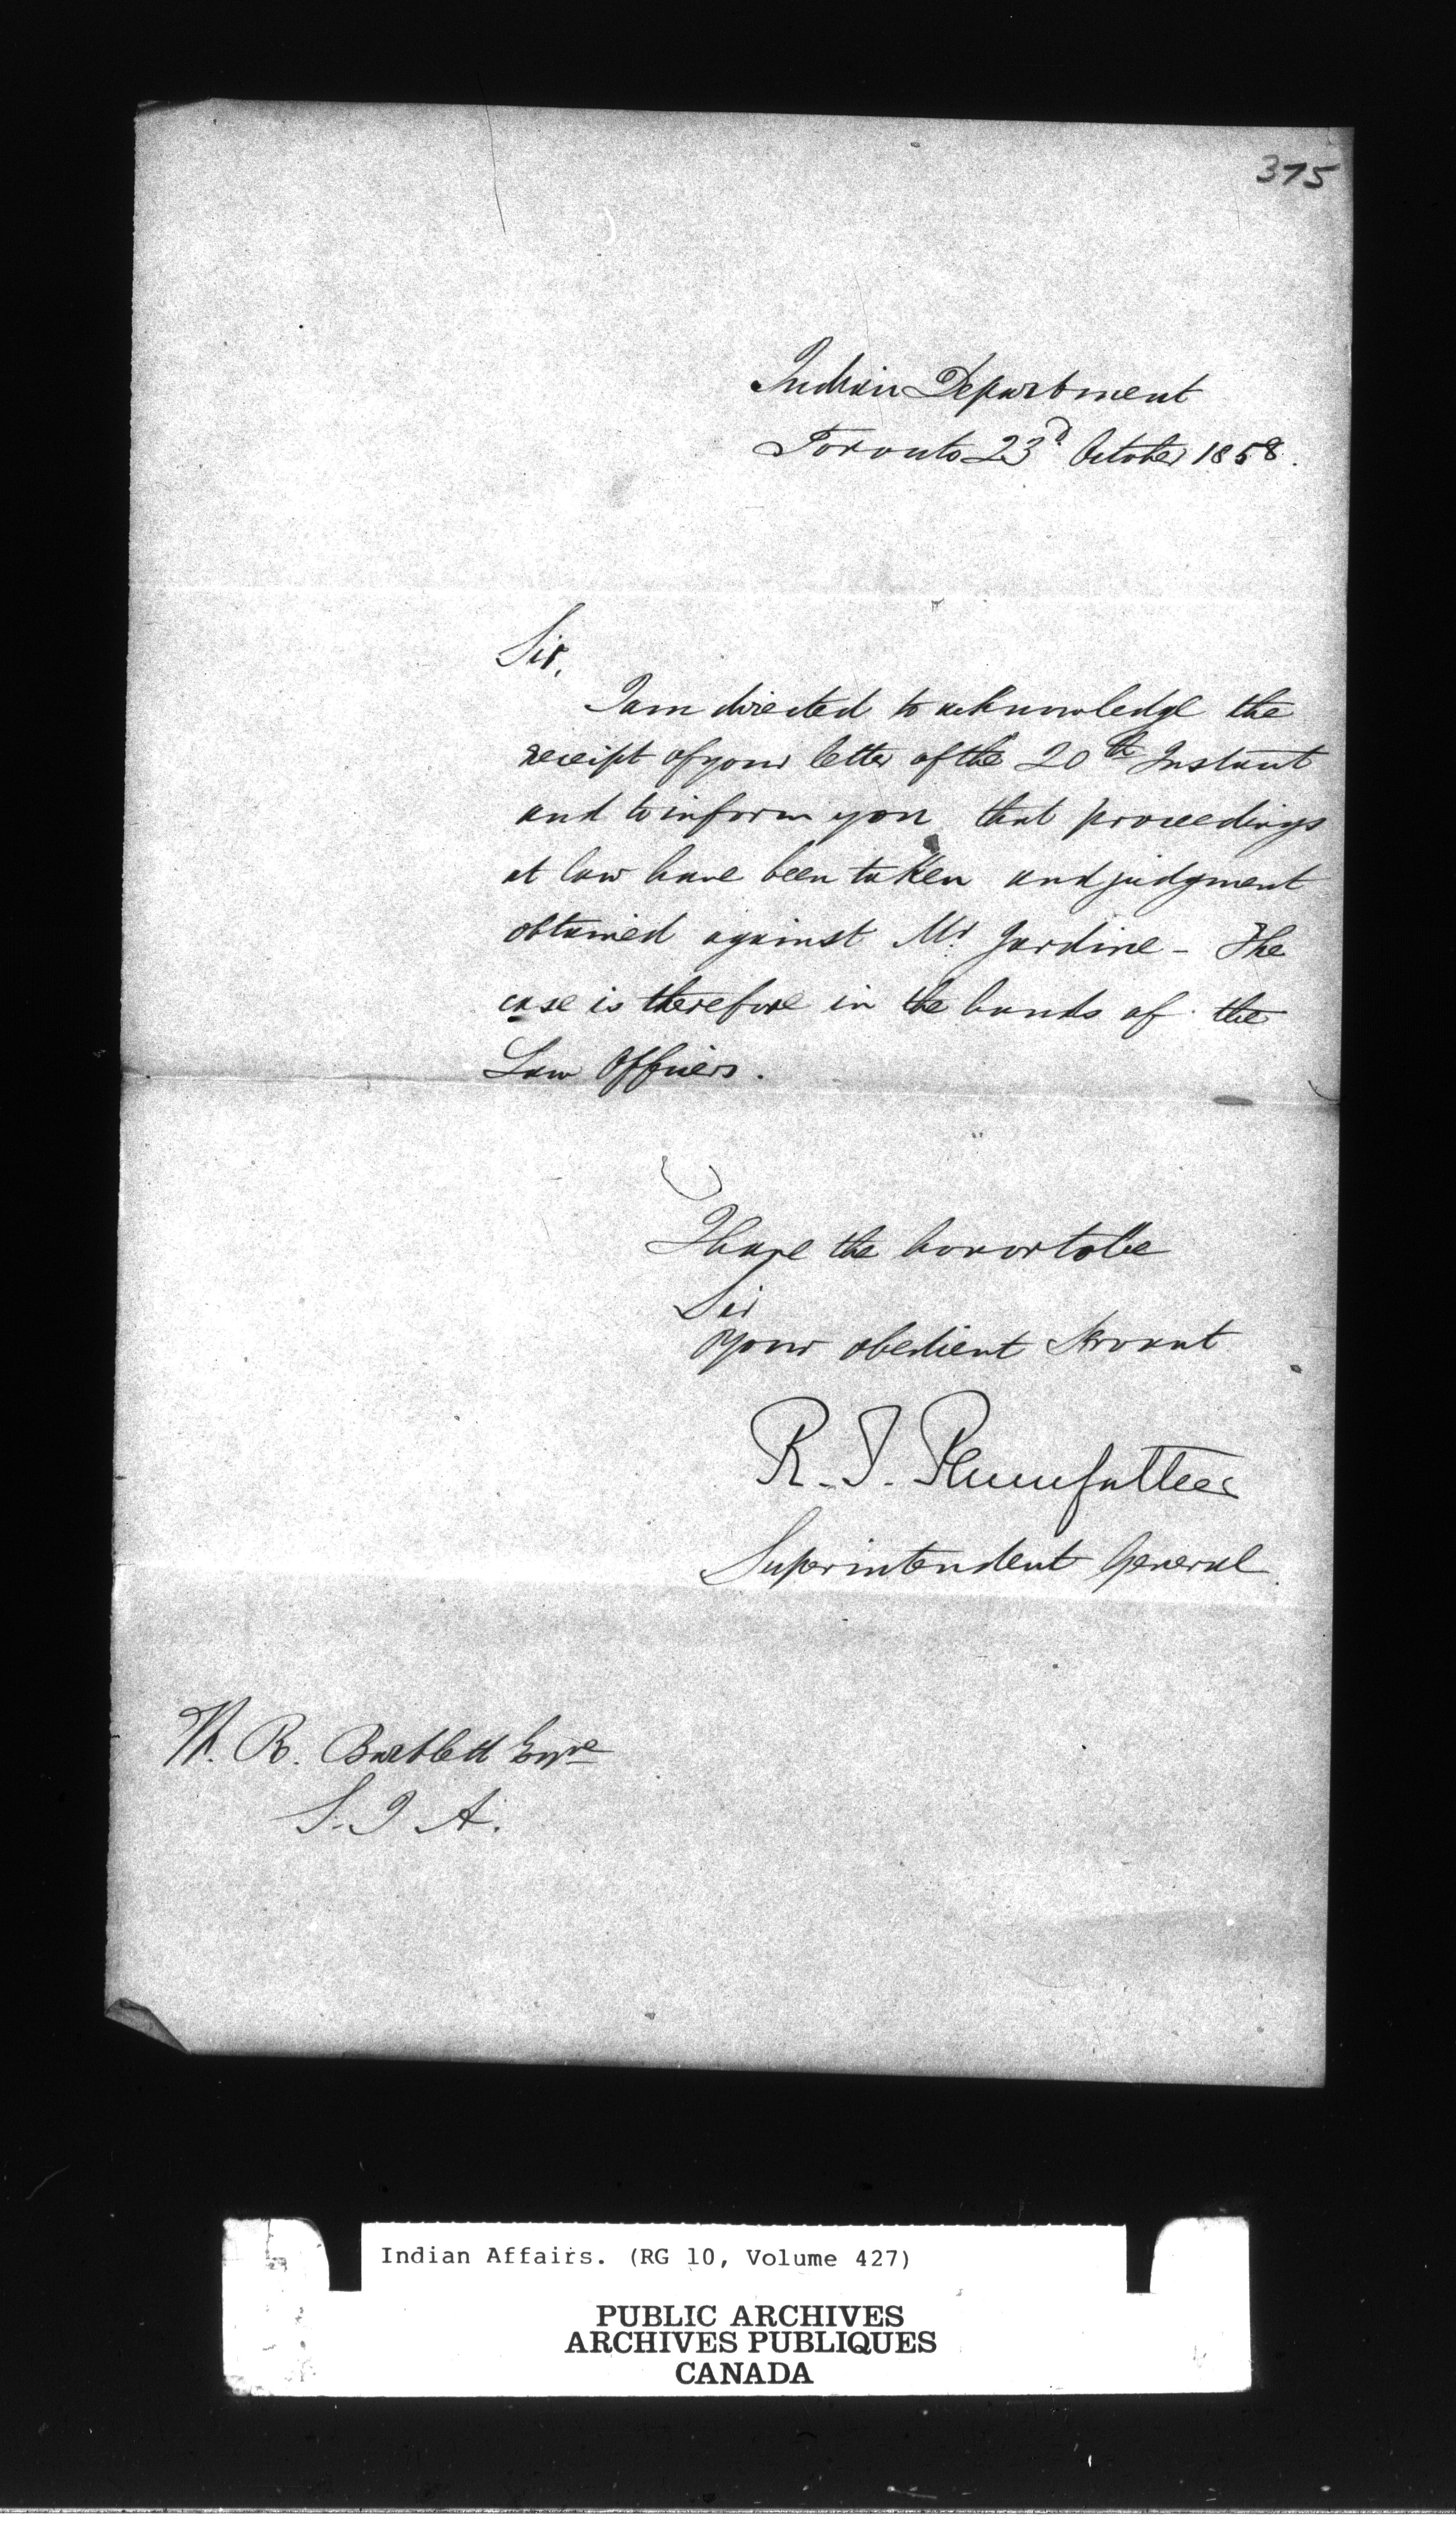 375
Indian Department
Toronto 23d October 1858.
Sir,
I am directed to acknowledge the
receipt of your letter of the 20th Instant
and to inform you that proceedings
at law have been taken and judgment
obtained against Mr Jardine - The
case is therefore in the hands of the
Law Officers.
I have the honor to be
Sir
Your obedient Servant
R. T. Pennefather
Superintendent General.
W. R. Bartlett Esqre
S. I. A.
Indian Affairs. (RG 10, Volume 427)
PUBLIC ARCHIVES
ARCHIVES PUBLIQUES
CANADA